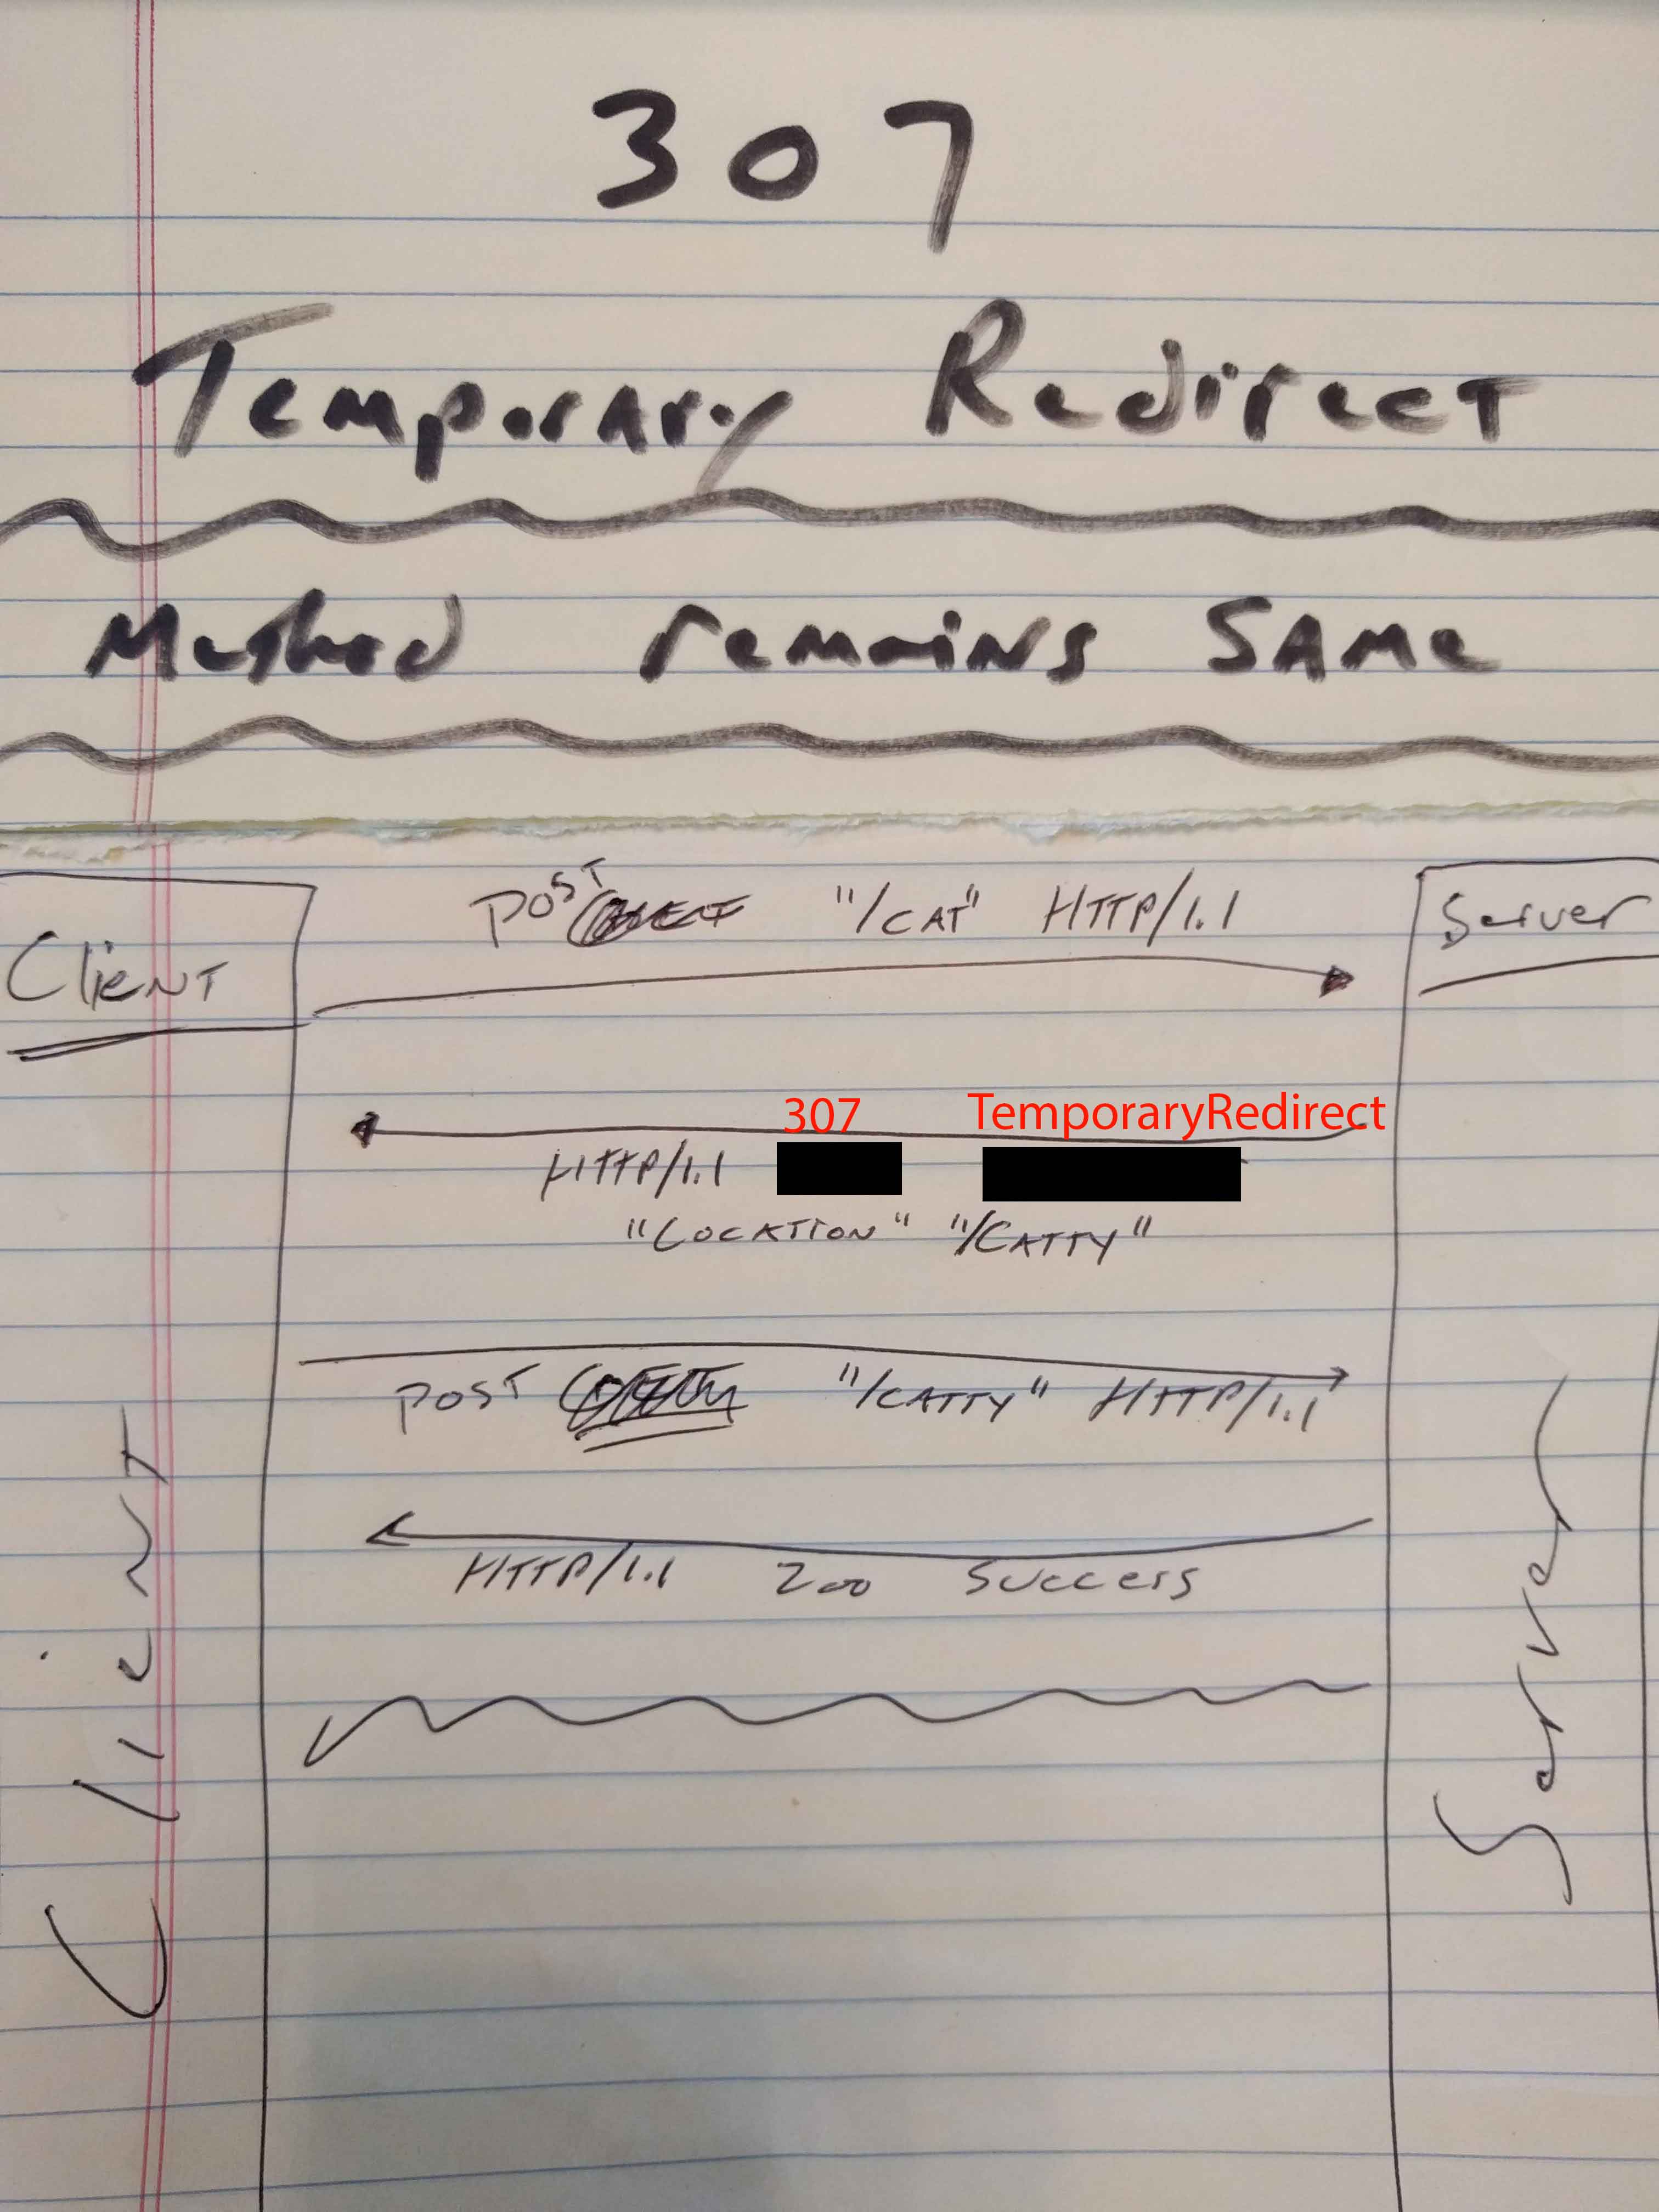 307
Temporary Redirect
Method remains SAMe
Client
POST "/CAT" HTTP/1.1
Server
307 TemporaryRedirect
HTTP/1.1
"LOCATION" "/CATTY"
POST "/CATTY" HTTP/1.1
HTTP/1.1 200 Success
Client
Server